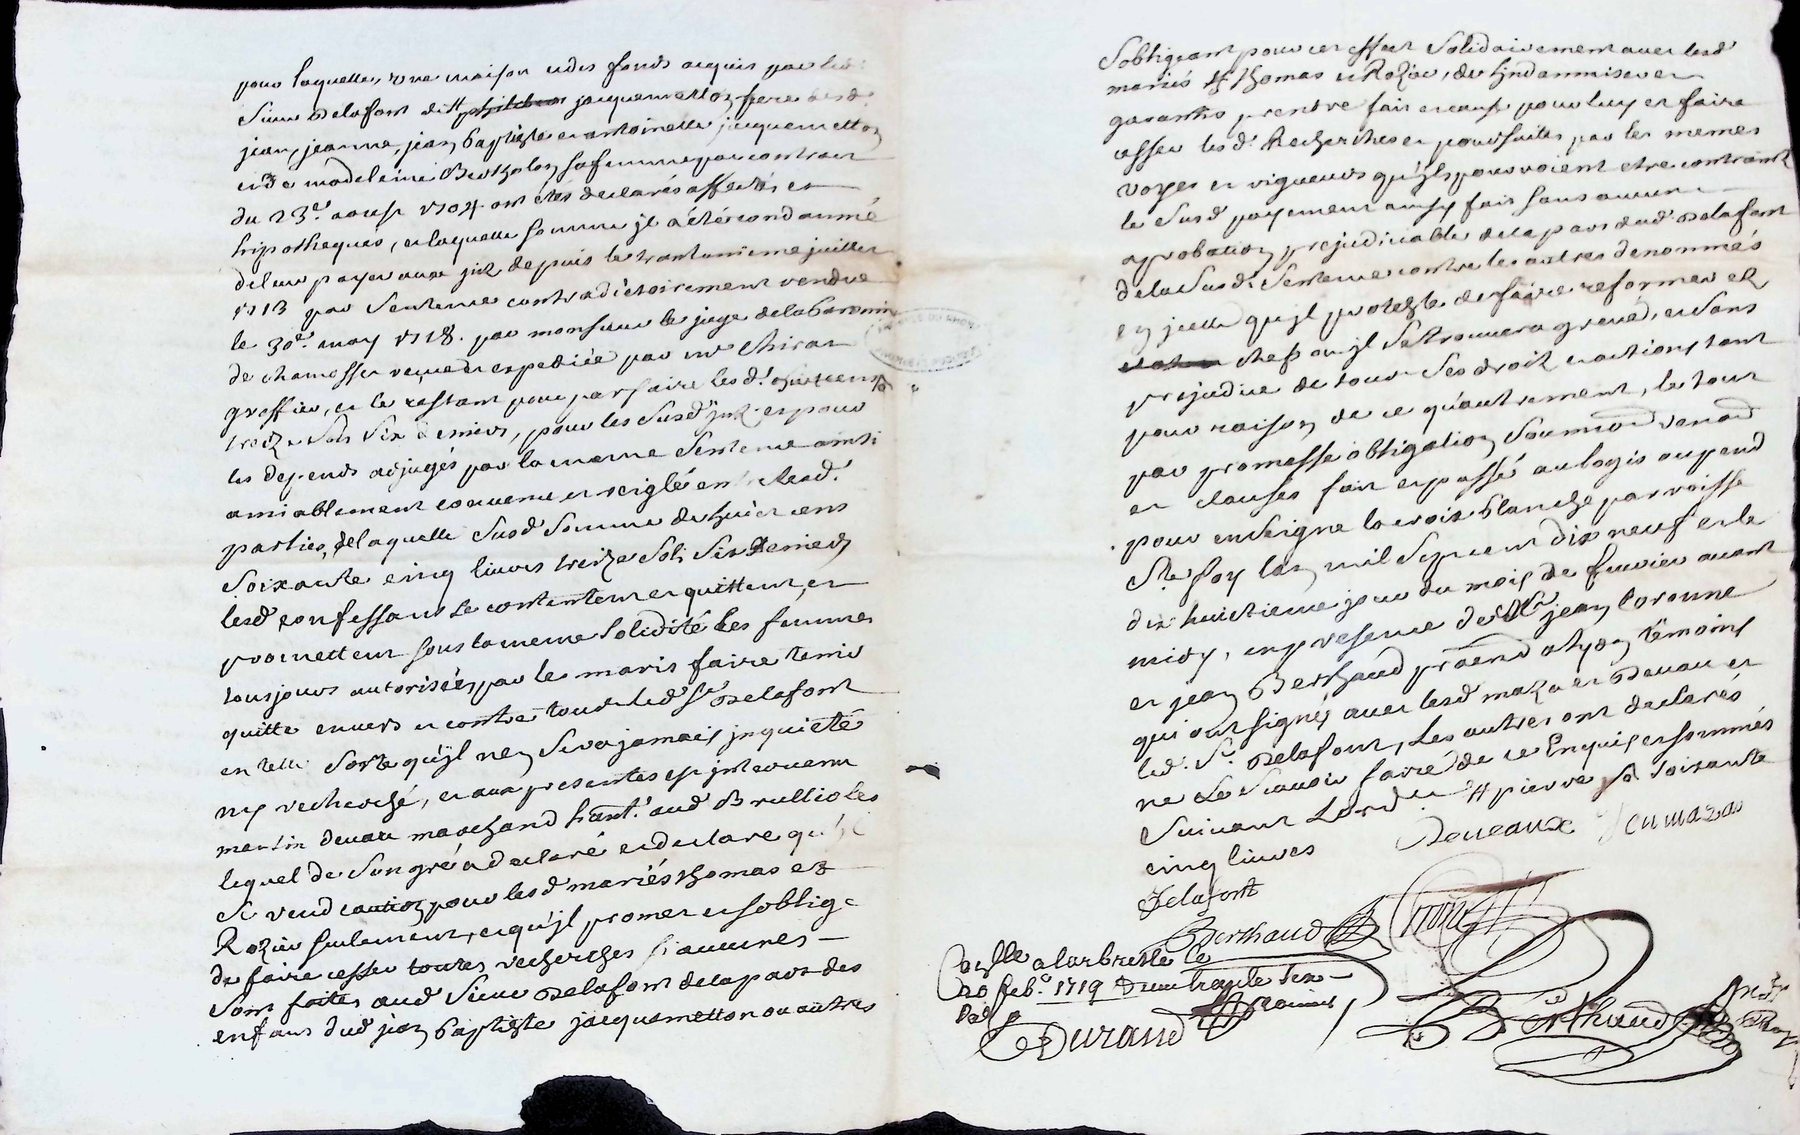 pour laquelle, une maison et des fonds acquis par led.
Sieur Delafont dit H jacquemetton frere desd.
jean, jeanne, jean baptiste et antoinette jacquemetton
et de madeleine Berthollon sa femme par contract
du 23e. aoust 1704. ont étés declarés affectés et
hipothequés, et laquelle somme jl a été condamné
de leur payer avec jnt. depuis le trantunieme juillet
1713 par Sentence contradictoirement rendue
le 30e. may 1718. par monsieur le juge de la baronnie
de chamosset et expediée par me. Chirat
greffier, et le restant pour parfaire lesd.
treize Sols Six deniers, pour les Susd. jnt. et pour
les depends adjugés par la meme Sentence ainsi
amiablement convenu et reiglé entre lesd.
parties, de laquelle Susd. Somme de huict cens
Soixante cinq livres treize Sols Six Deniers
lesd. confessans Se contentent et quittent, et
promettent sous la meme Solidité les femmes
tousjours autorisées par les maris faire tenir
quitte envers et contre tous led. Sr. Delafont
en telle Sorte qu'jl n'en Sera jamais jnquieté
ny recherché, et aux presentes est jntervenu
martin devau marchand hant. aud. Brullioles
lequel de Son gré a declaré et declare qu'jl
Se rend caution pour lesd. mariés thomas et
Rozier Seulement, et qu'jl promet et s'oblige
de faire cesser toutes recherches si aucunes
Sont faites aud. Sieur Delafont de la part des
enfans dud. jean baptiste jacquemetton ou autres
S'obligeant pour cet effect Solidairement avec lesd.
mariés H thomas et Rozier, de l'jndamniser et
garantir prendre fait et cause pour luy et faire
cesser lesd. Recherches et poursuites par les memes
voyes et vigueurs qu'jls pourroient etre contraints
le Susd. payement ainsy fait Sans aucune
aprobation prejudiciable de la part dud. Delafont
de la Susd. Sentence contre les autres denommés
en jcelle qu'jl proteste de faire reformer et
chefs ou jl Se trouvera grevé, et Sans
prejudice de tous Ses droits et actions tant
pour raison de ce qu'autrement, le tout
par promesse obligation Soumiond. renond.
et clauses fait et passé au logis ou pend
pour enseigne la croix blanche parroisse
Ste foy l'an mil Sept cent dix neuf et le
dix huictieme jour du mois de fevrier avant
midy, en presence de Sr. jean Coronne
et jean Berthaud pratnd. a lyon têmoins
qui ont signés avec lesd. mazar et Devau et
led. Sr. Delafont, Les autres ont declarés
ne Le Scavoir faire de ce Enquis et sommés
Suivant L'ord. H pierre Soixante
cinq livres
Deveaux Jeu mazar
Delafont
Berthaud
Conlle a larbresle le
20 feb. 1719
Durand
Berthaud